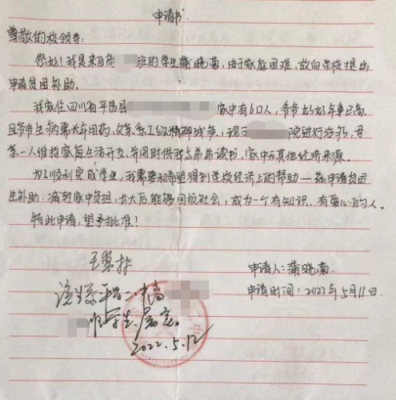 申请书
尊敬的校领导:
你好!我是来自 班的学生蒲晓菡,由于家庭困难,故向学校提出
申请贫困补助。
我家住四川省平昌县 家中有6口人,爷爷奶奶年事已高
且爷爷生病需长年用药,父亲系二级精神残疾,现于 院进行治疗,母
亲一人维持家庭生活开支,并同时供我与弟弟读书,家中无其他经济来源。
为了顺利完成学业,我需要和希望得到学校经济上的帮助——故申请贫困
生补助,减轻家中负担,长大后能够回报社会,成为一个有知识、有爱心的人。
特此申请,望予批准!
该生系平昌二中高
班学生,属实。
2022.5.12
申请人:蒲晓菡
申请时间:2022年5月11日